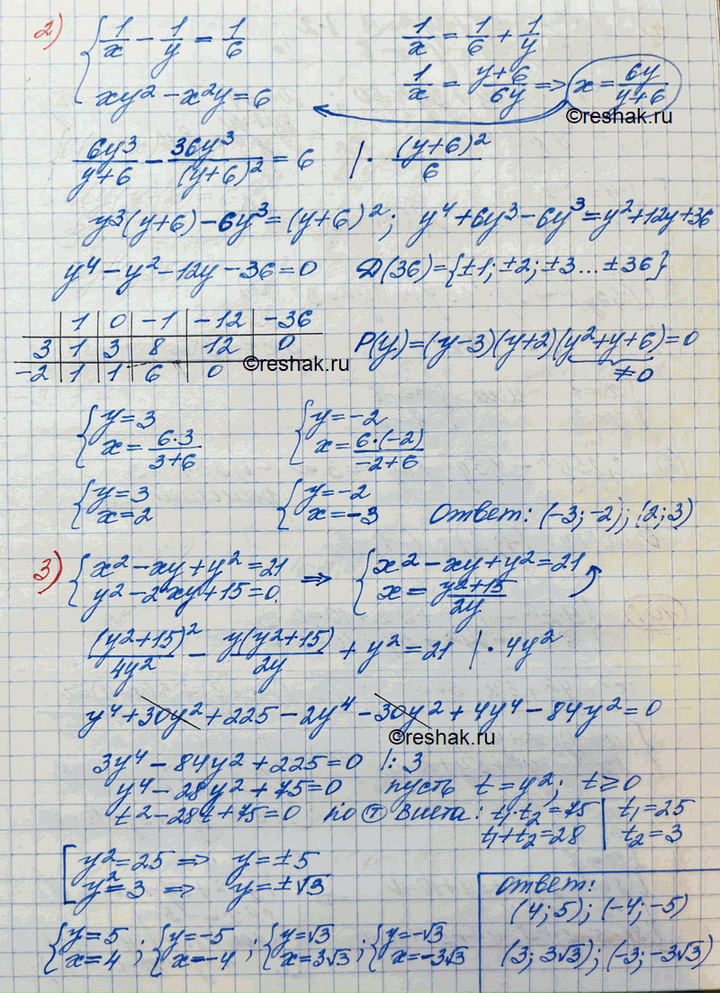 2) { 1/x - 1/y = 1/6
xy² - x²y = 6
1/x = 1/6 + 1/y
1/x = (y+6)/6y => x = 6y/(y+6)
©reshak.ru
6y³/(y+6) - 36y³/(y+6)² = 6 | · (y+6)²/6
y³(y+6) - 6y³ = (y+6)²; y⁴+6y³-6y³=y²+12y+36
y⁴ - y² - 12y - 36 = 0 D(36)={±1; ±2; ±3...±36}
| 1 | 0 | -1 | -12 | -36
3 | 1 | 3 | 8 | 12 | 0
-2 | 1 | 1 | 6 | 0
©reshak.ru
P(y)=(y-3)(y+2)(y²+y+6)=0
≠0
{ y=3
x = 6·3/(3+6)
{ y=-2
x = 6·(-2)/(-2+6)
{ y=3
x=2
{ y=-2
x=-3
Ответ: (-3;-2); (2;3)
3) { x²-xy+y²=21
y²-2xy+15=0.
=> { x²-xy+y²=21
x = (y²+15)/2y
(y²+15)²/4y² - y(y²+15)/2y + y² = 21 | · 4y²
y⁴+30y²+225-2y⁴-30y²+4y⁴-84y²=0
©reshak.ru
3y⁴-84y²+225=0 |:3
y⁴-28y²+75=0 пусть t=y²; t≥0
t²-28t+75=0 по т Виета: t₁·t₂=75 | t₁=25
t₁+t₂=28 | t₂=3
[ y²=25 => y=±5
y²=3 => y=±√3
{ y=5
x=4 ;
{ y=-5
x=-4 ;
{ y=√3
x=3√3 ;
{ y=-√3
x=-3√3
Ответ:
(4;5); (-4;-5)
(3; 3√3); (-3; -3√3)